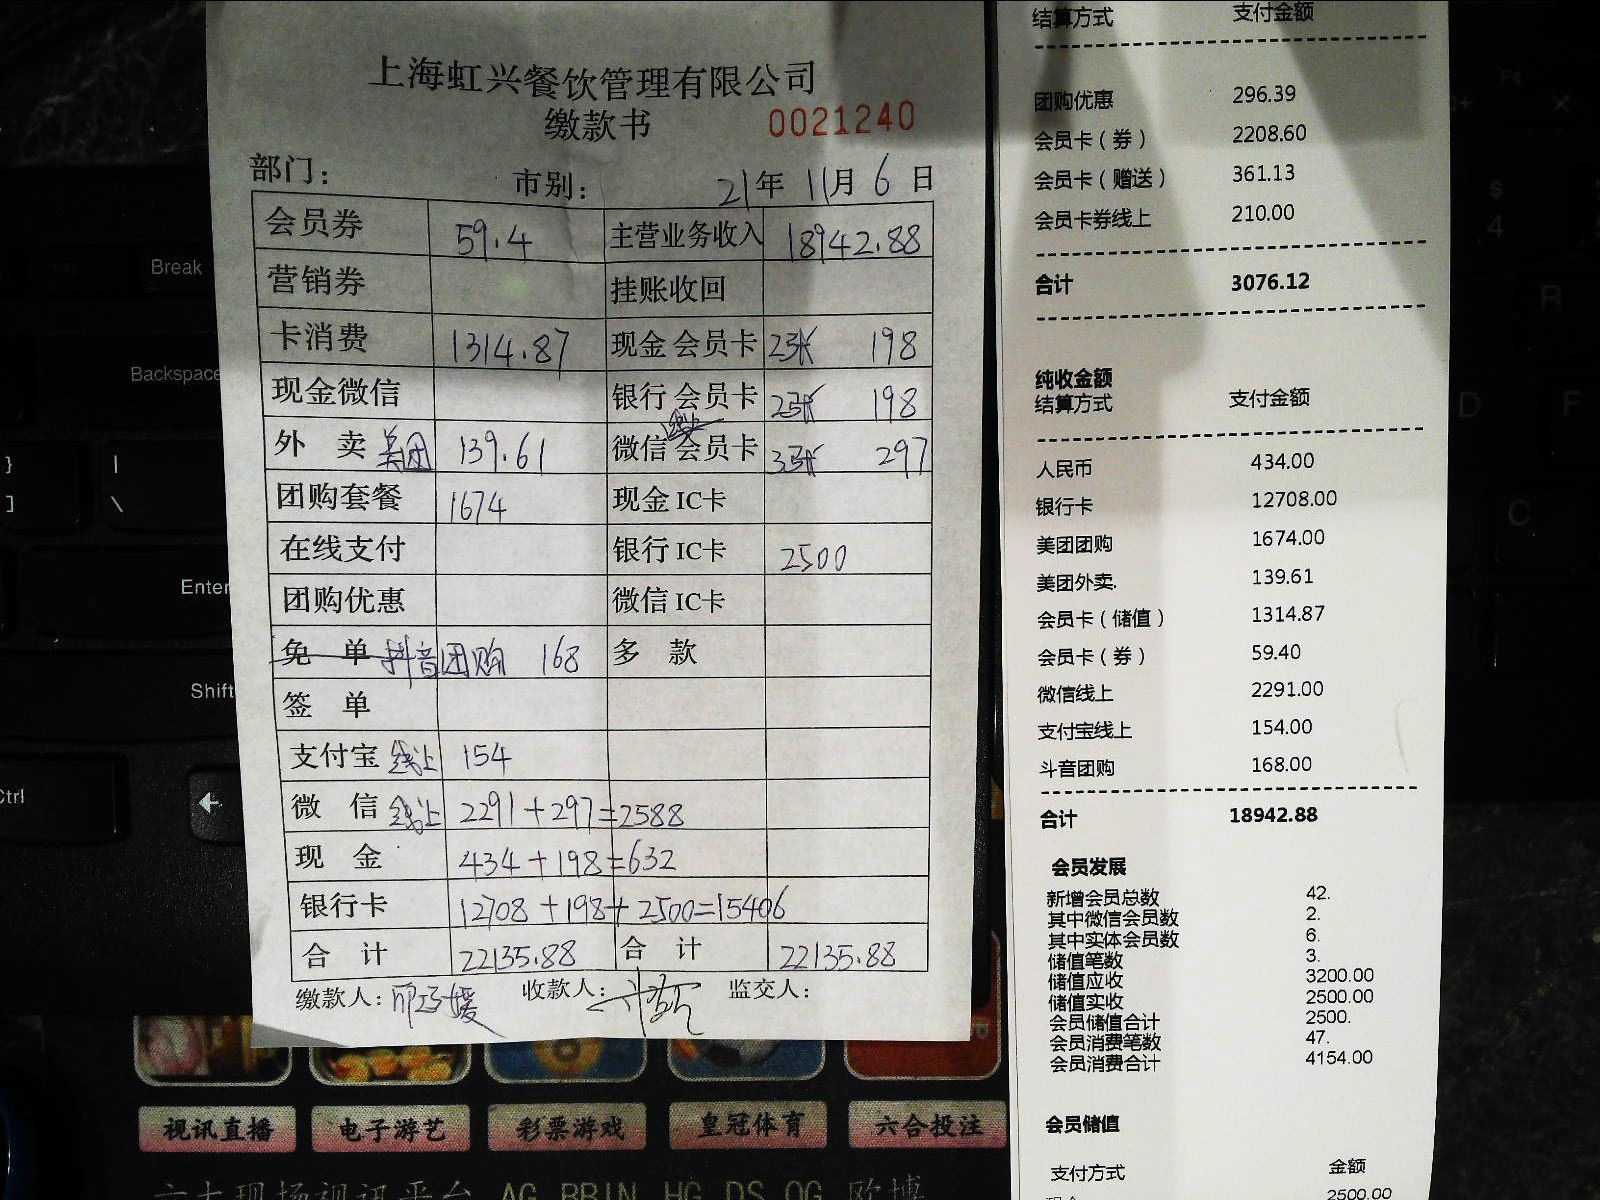 上海虹兴餐饮管理有限公司
缴款书 0021240
部门： 市别： 21年 11月 6 日
会员券 59.4 主营业务收入 18942.88
营销券 挂账收回
卡消费 1314.87 现金 会员卡 2张 198
现金微信 银行 会员卡 2张 198
外 卖 美团 139.61 微信 线上 会员卡 3张 297
团购套餐 1674 现金 IC卡
在线支付 银行 IC卡 2500
团购优惠 微信 IC卡
免 单 抖音团购 168 多 款
签 单
支付宝 线上 154
微 信 线上 2291+297=2588
现 金 434+198=632
银行卡 12708+198+2500=15406
合 计 22135.88 合 计 22135.88
缴款人： 收款人： 监交人：
结算方式 支付金额
团购优惠 296.39
会员卡（券） 2208.60
会员卡（赠送） 361.13
会员卡券线上 210.00
合计 3076.12
纯收金额
结算方式 支付金额
人民币 434.00
银行卡 12708.00
美团团购 1674.00
美团外卖. 139.61
会员卡（储值） 1314.87
会员卡（券） 59.40
微信线上 2291.00
支付宝线上 154.00
斗音团购 168.00
合计 18942.88
会员发展
新增会员总数 42.
其中微信会员数 2.
其中实体会员数 6.
储值笔数 3.
储值应收 3200.00
储值实收 2500.00
会员储值合计 2500.
会员消费笔数 47.
会员消费合计 4154.00
会员储值
支付方式 金额
现金 2500.00
Break
Backspace
Enter
Shift
Ctrl
}
]
|
\
F4
$
4
R
D
F
C
视讯直播 电子游艺 彩票游戏 皇冠体育 六合投注
六大现场视讯平台 AG BBIN HG DS OG 欧博